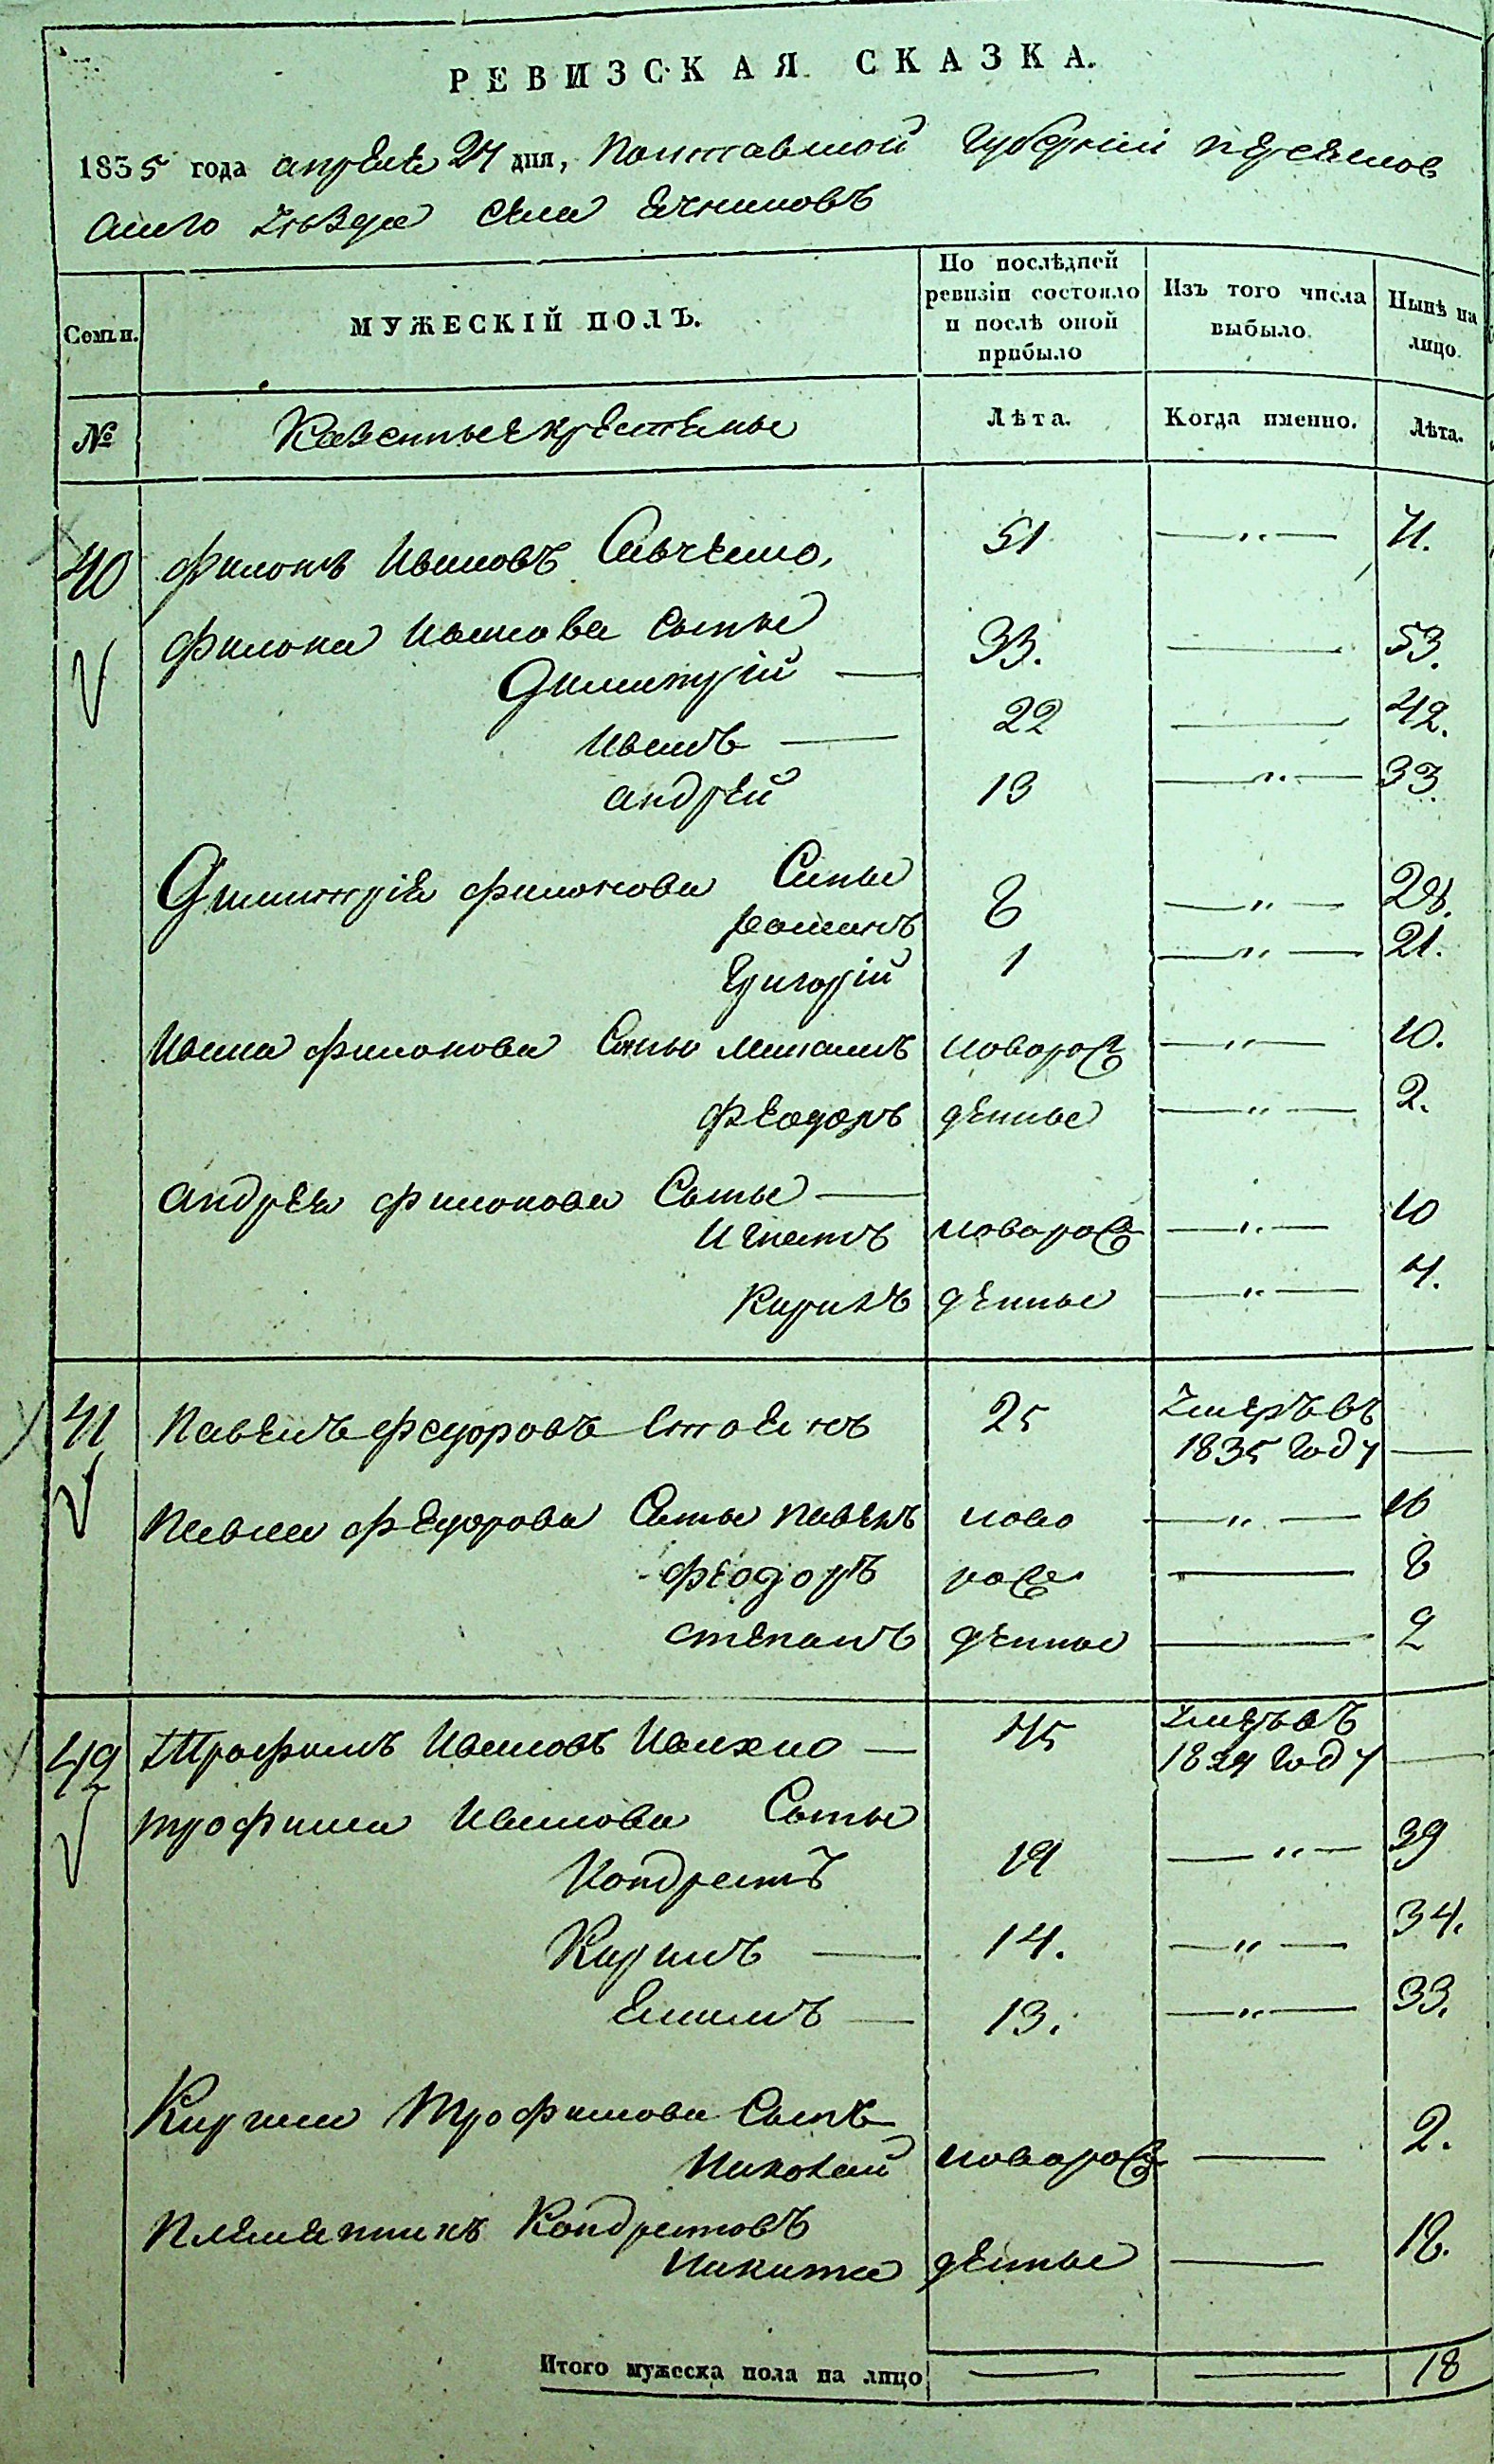 РЕВИЗСКАЯ СКАЗКА.
1835 года апреля 27 дня, Полтавской Губернии Переяслов
скаго Уѣзда Села Ячниковъ
Семьи. МУЖЕСКІЙ ПОЛЪ. По послѣдней ревизіи состояло и послѣ оной прибыло Изъ того числа выбыло Нынѣ на лицо.
№ Казенные крестьяне Лѣта. Когда именно. Лѣта.
40 Филонъ Ивановъ Савченко, 51 — „ — 71.
Филона Иванова Сыны
Димитрій — 33. — 53.
Иванъ — 22 — 42.
андрей 13 — „ — 33.
Димитрія Филонова Сыны
романъ 8 — „ — 28.
Григорій 1 — „ — 21.
Ивана Филонова Сыны Михаилъ новорож — „ — 10.
Феодоръ денные — „ — 2.
андрея Филонова Сыны —
Игнатъ новорож — „ — 10
Кирилъ денные — „ — 4.
41 Павелъ Федоровъ 25 Умеръ въ
1835 году —
Павла Федорова Сыны Павелъ ново — „ — 16
Феодоръ рож — 8
степанъ денные — 2
42 Трофимъ Ивановъ Ивахно — 45 Умеръ въ
1824 году —
трофима Иванова Сыны
Кондратъ 19 — „ — 39
Кирилъ — 14. — „ — 34.
— 13. — „ — 33.
Кирила Трофимова Сынъ
Николай новорож — 2.
Племянникъ Кондратовъ
Никита денные — 18.
Итого мужеска пола на лицо — — 18